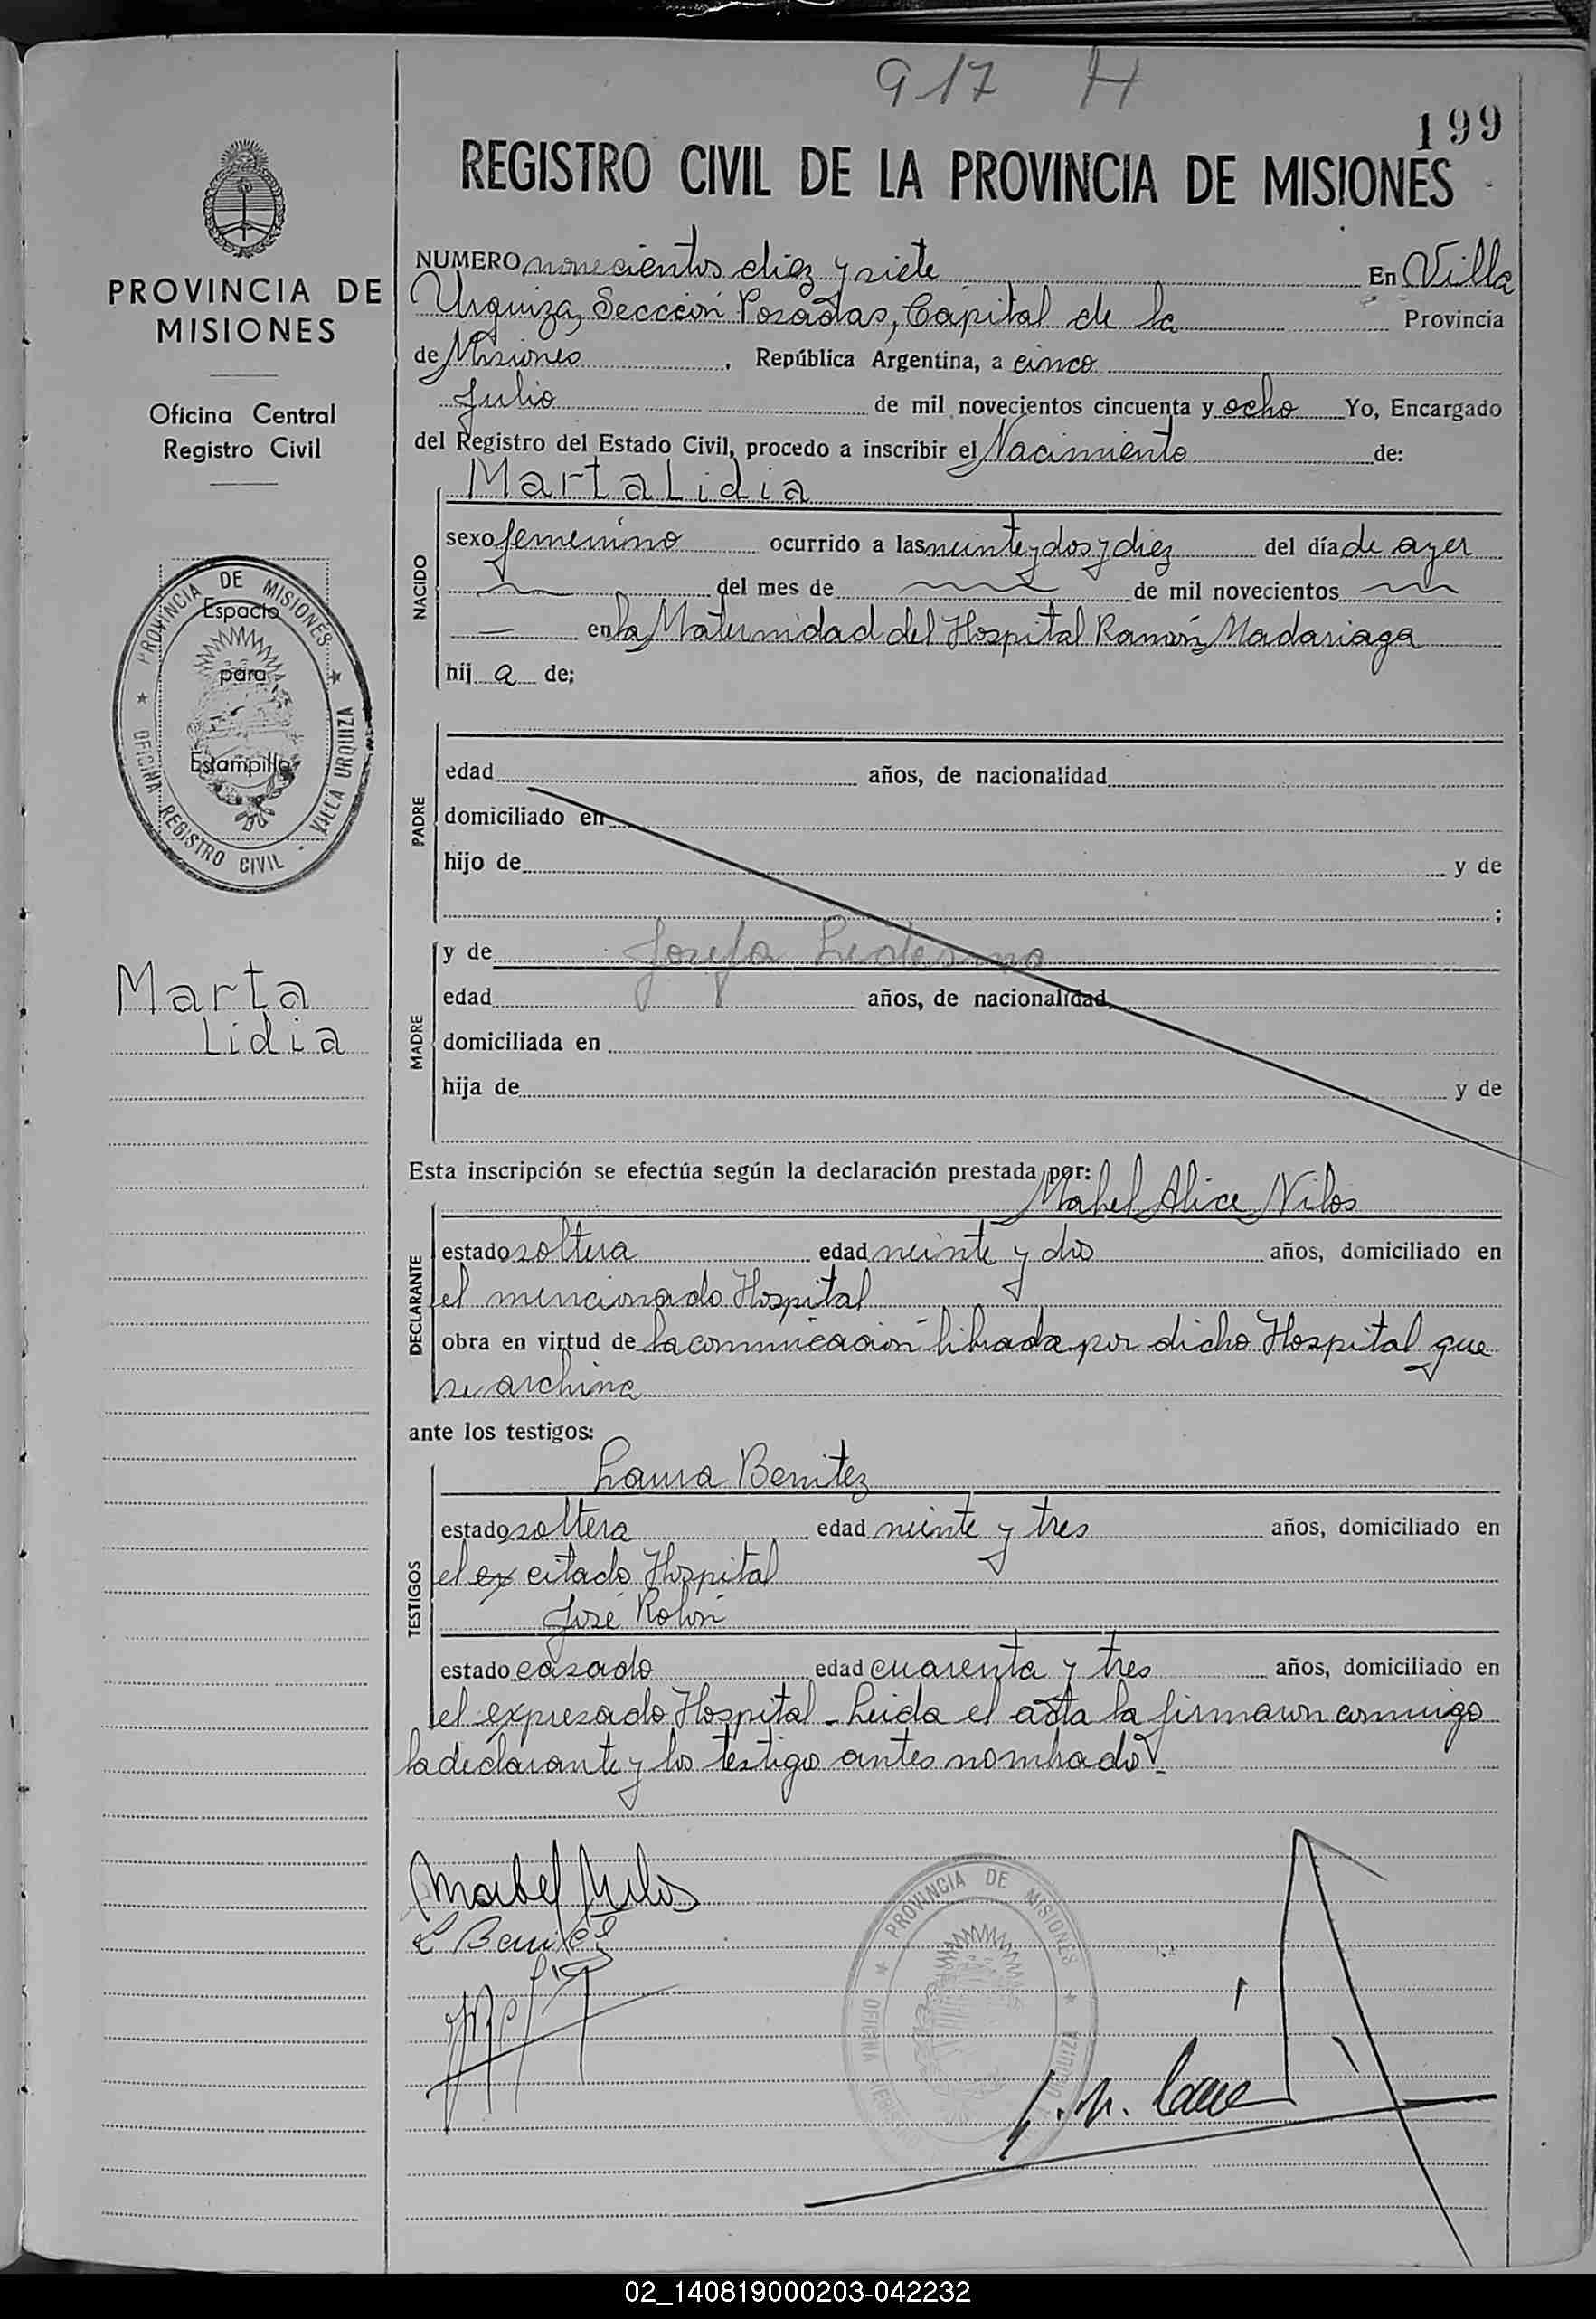 917 H
199
REGISTRO CIVIL DE LA PROVINCIA DE MISIONES
PROVINCIA DE
MISIONES
Oficina Central
Registro Civil
PROVINCIA DE MISIONES
OFICINA REGISTRO CIVIL
VILLA URQUIZA
Espacio
para
Estampilla
Marta
Lidia
NUMERO novecientos diez y siete En Villa
Urquiza, Sección Posadas, Capital de la Provincia
de Misiones, República Argentina, a cinco
Julio de mil novecientos cincuenta y ocho Yo, Encargado
del Registro del Estado Civil, procedo a inscribir el Nacimiento de:
Marta Lidia
NACIDO
sexo femenino ocurrido a las veinte y dos y diez del día de ayer
del mes de de mil novecientos
— en la Maternidad del Hospital Ramón Madariaga
hij a de;
PADRE
edad años, de nacionalidad
domiciliado en
hijo de y de
;
MADRE
y de Josefa Ledesma
edad años, de nacionalidad
domiciliada en
hija de y de
Esta inscripción se efectúa según la declaración prestada por:
Mabel Alice Nilos
DECLARANTE
estado soltera edad veinte y dos años, domiciliado en
el mencionado Hospital
obra en virtud de la comunicación librada por dicho Hospital que
se archiva
ante los testigos:
Laura Benitez
TESTIGOS
estado soltera edad veinte y tres años, domiciliado en
el ex citado Hospital
José Rolón
estado casado edad cuarenta y tres años, domiciliado en
el expresado Hospital - Leida el acta la firmaron conmigo
la declarante y los testigo antes nombrados.-
Mabel Nilos
L Benitez
PROVINCIA DE MISIONES
OFICINA
02_140819000203-042232